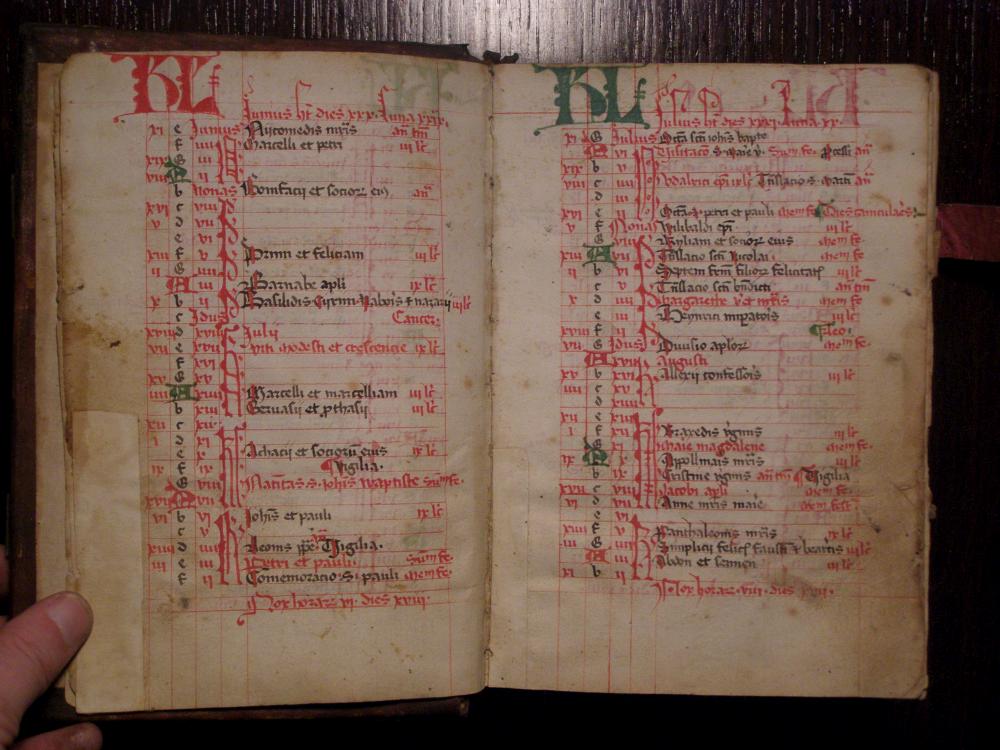 KL Junius ht dies xxx. Luna xxix.
xi e Junius Nycomedis mris an tm
f iiii Marcelli et petri iii lc
xix g iii
viii A ii
b Nonas Bonifacii et socior eius an
xvi c viii
v d vii
e vi
f v Primi et feliciani iii lc
ii g iiii
A iii Barnabe apli ix lc
x b ii Basilidis Cyrini Naboris et nazarii iii lc
c Idus Cancer.
xviii d xviii Julii
vii e xvii Viti modesti et crescencie ix lc
f xvi
xv g xv
iiii A xiiii Marcelli et marcelliani iii lc
b xiii Gervasii et prothasii iii lc
xii c xii
i d xi
e x Achacii et sociorum eius ix lc
ix f ix Vigilia.
g viii Nativitas s. Johis Baptiste Sum fe.
xvii A vii
vi b vi Johis et pauli ix lc
c v
xiiii d iiii Leonis ppe Vigilia.
iii e iii Petri et pauli. Sum fe.
f ii Comemoracio S. pauli mem fe.
Nox horar vi. dies xviii.
KL Julius ht dies xxxi. Luna xxx.
xi g Julius Octa scti Johis bapte
A vi Visitaco s. marie v. Sum fe. Processi an
xix b v
viii c iiii Vodalrici epi ix lc Translacio s. martini an
d iii
xvi e ii Octa petri et pauli mem fe. Dies caniculares.
v f Nonas Wilibaldi epi
g viii Kyliani et socior eius mem fe.
A vii Translacio scti Nicolai. mem fe.
ii b vi Septem frm filior felicitatis iii lc
c v Translacio scti bndicti an tm
x d iiii Margarethe v et mris mem fe.
e iii Heynrici imperatois iii lc
xviii f ii Leo.
vii g Idus Divisio aplor mem fe.
A xvii Augusti
xv b xvi Allexii confessois iii lc
iiii c xv
d xiiii
xii e xiii
i f xii Praxedis vginis iii lc
g xi Marie magdalene mem fe.
ix A x Appollinaris mris iii lc
b ix Cristine vginis an tm Vigilia
xvii c viii Jacobi apli mem fe.
vi d vii Anne mris marie mem fest
e vi
xiiii f v Panthaleonis mris ix lc
iii g iiii Simplicii felicis faustini et beatricis iii lc
A iii Abdon et sennen iii lc
xi b ii
Nox horar viii. dies xvi.